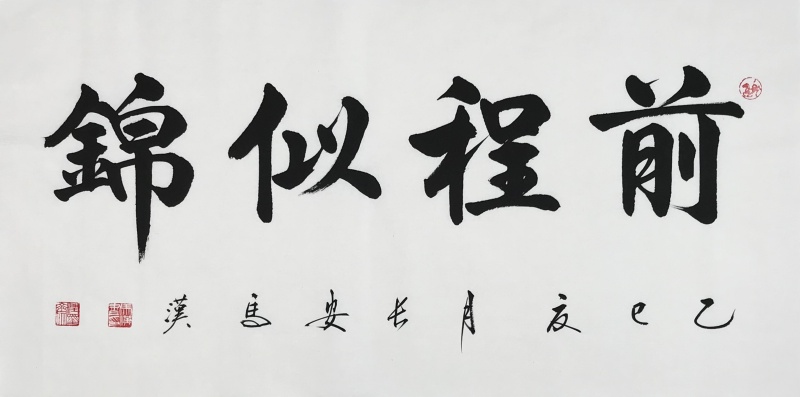 前程似錦
乙巳夏月长安馬漢